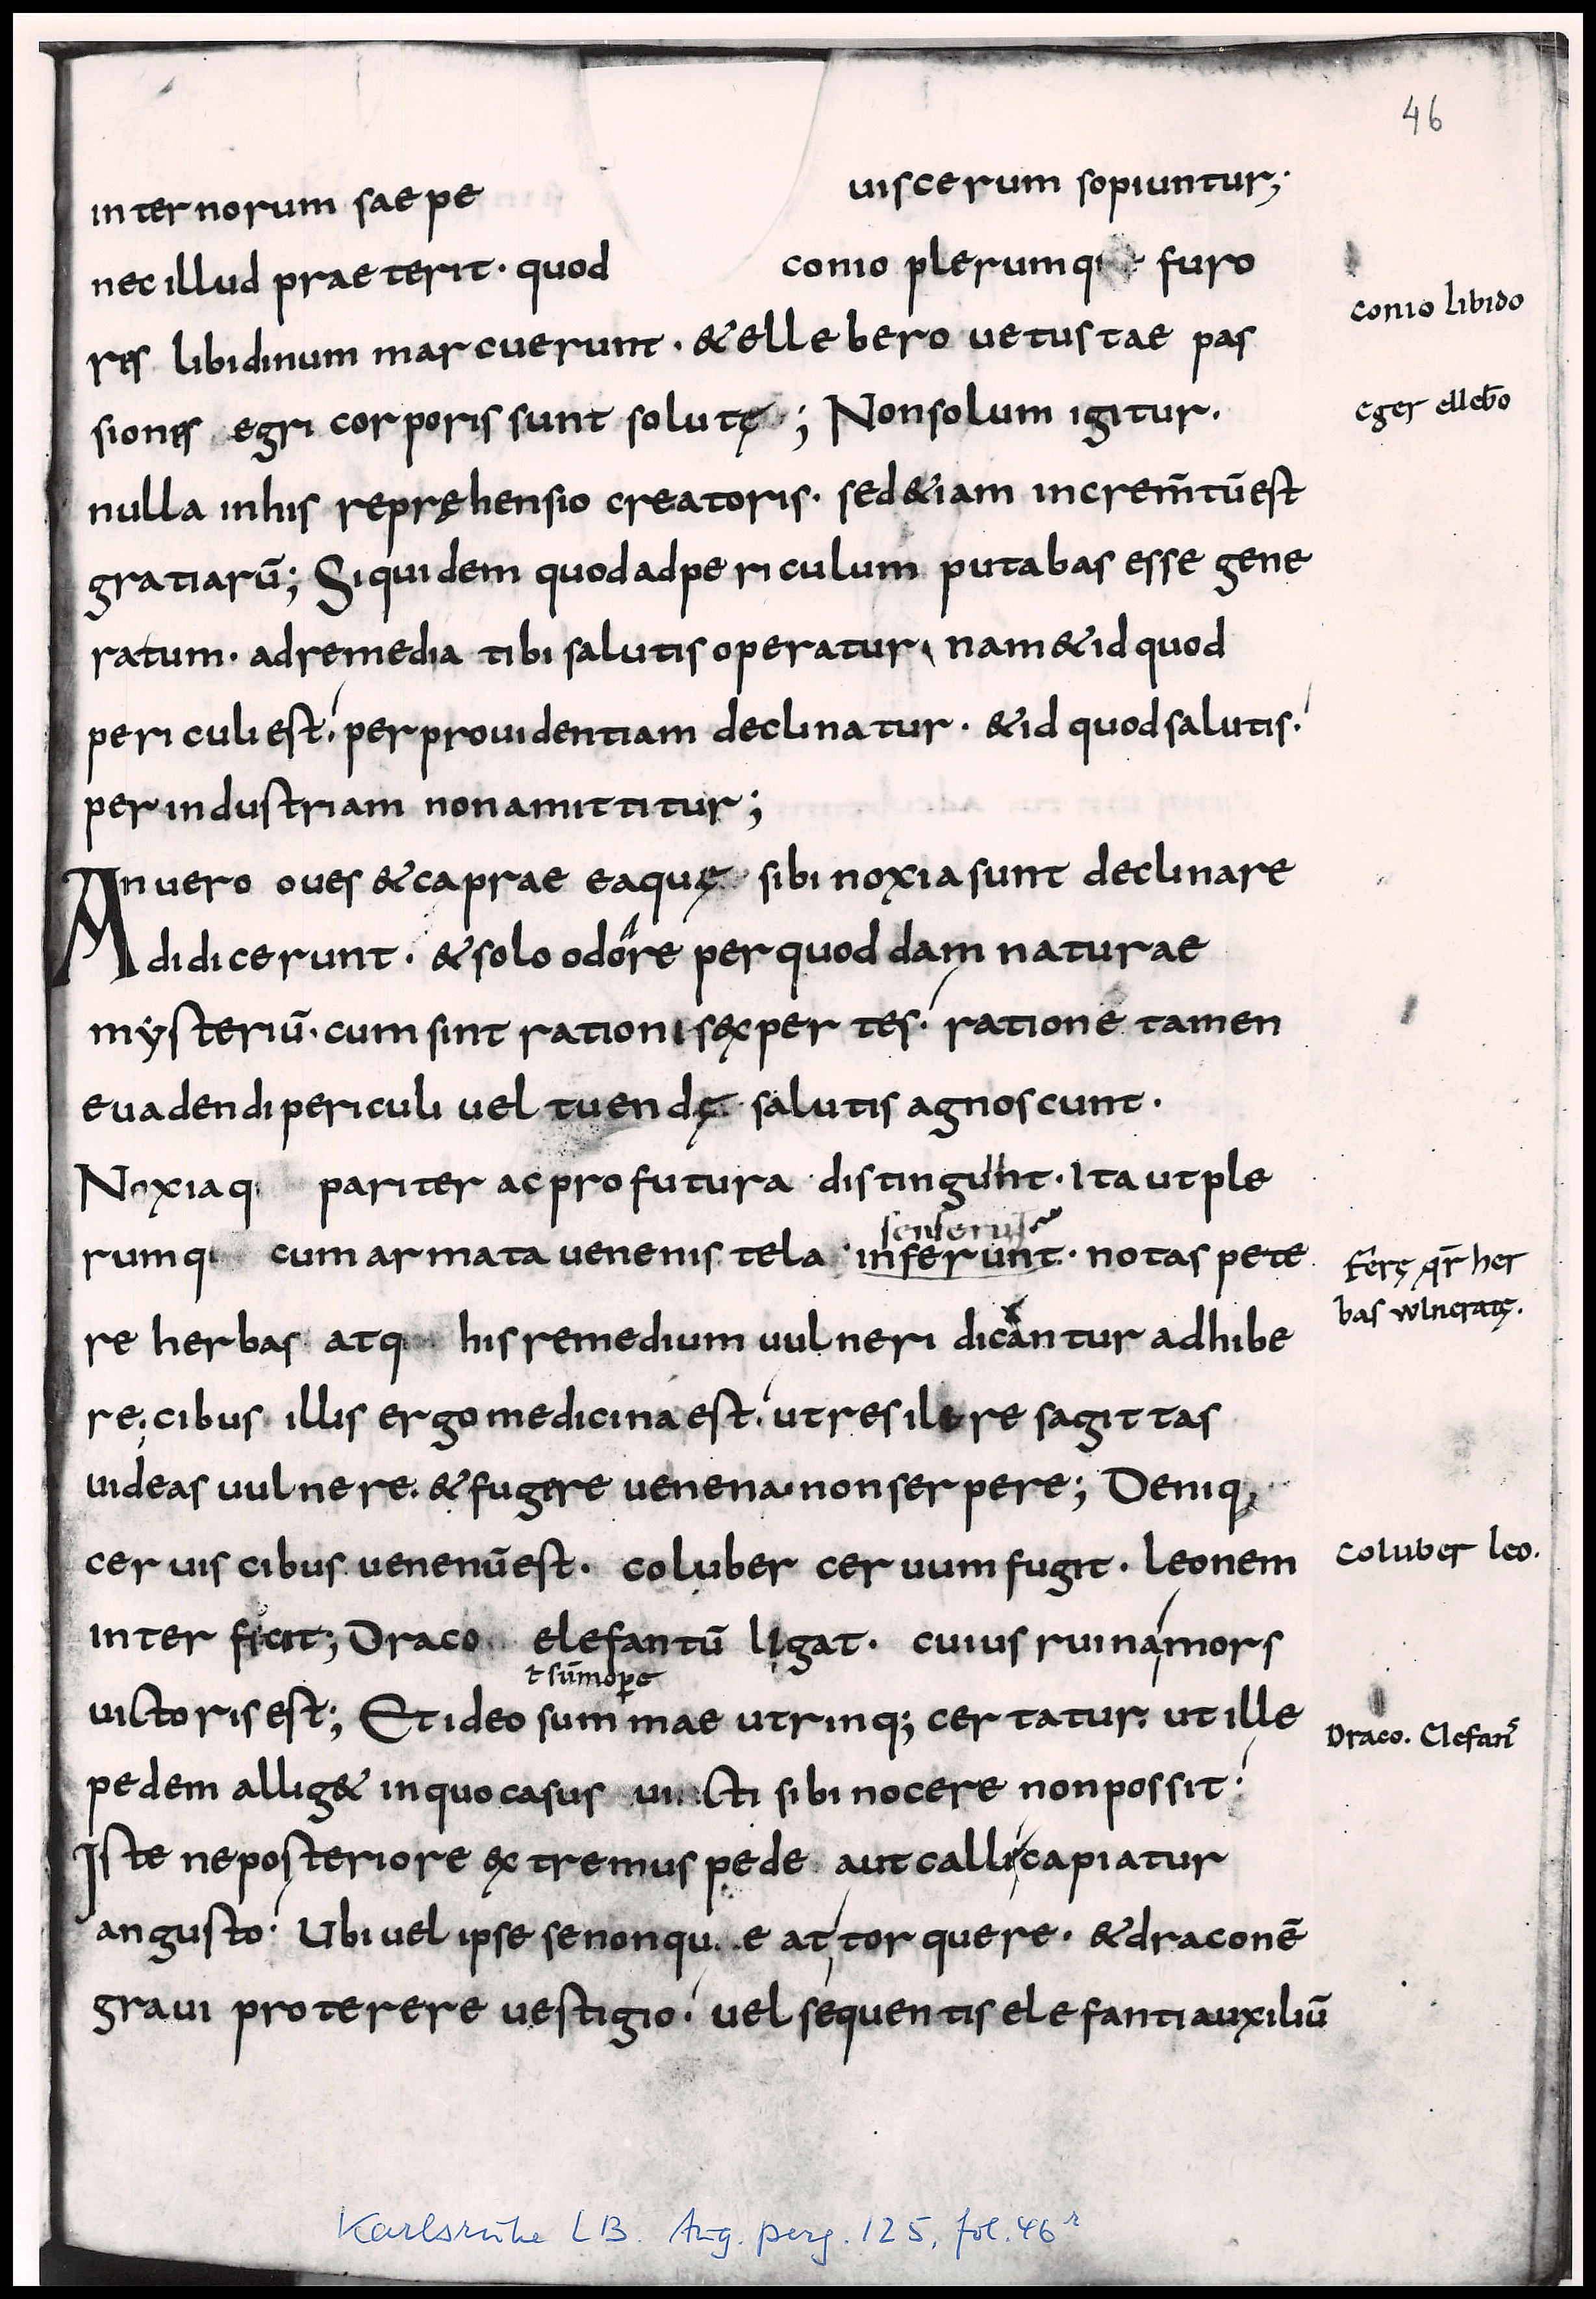 46
internorum saepe uiscerum sopiuntur;
nec illud praeterit · quod conio plerumq furo
conio libido
res libidinum marcuerunt · & ellebero uetustae pas
siones egri corporis sunt solutę ; Non solum igitur ·
eger elleb̄o
nulla inhis repręhensio creatoris · sed &iam increm̄tūest
gratiarū; Siquidem quodadpericulum putabas esse gene
ratum · adremedia tibi salutis operatur, nam & id quod
periculi est · perprouidentiam declinatur · & id quod salutis ·
per industriam nonamittitur ;
An uero oues & caprae eaquę sibi noxia sunt declinare
didicerunt · & solo odore per quod dam naturae
mẏsteriū · cum sint rationis expertes · ratione tamen
euadendi periculi uel tuendę salutis agnoscunt ·
Noxiaq pariter ac profutura distingunt · Ita ut ple
senserint
rumq cum armata uenenis tela inferunt · notas pete
Ferę qr̄ her
bas wlneratę.
re herbas atq his remedium uulneri dicantur adhibe
re; cibus illis ergo medicina est · ut resilere sagittas
uideas uulnere · & fugere uenena · non serpere; Deniq;
ceruis cibus uenenūest · coluber ceruum fugit · leonem
coluber leo.
interficit; Draco elefantū ligat · cuius ruina mors
ł sūmoꝑe
uictoris est; Et ideo summae utrinq; certatur · ut ille
Draco. Elefan̄
pedem allig& inquo casus uincti sibi nocere non possit ·
Iste ne posteriore extremus pede aut calli capiatur
angusto · Ubi uel ipse se nonqu e at torquere · & draconē
graui proterere uestigio · uel sequentis elefanti auxiliū
Karlsruhe LB. Aug. perg. 125, fol. 46 r